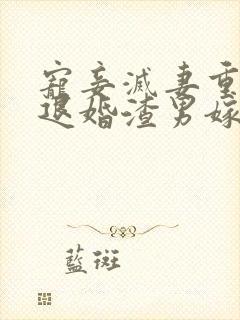 寵妾滅妻重
退婚渣男嫁
藍斑